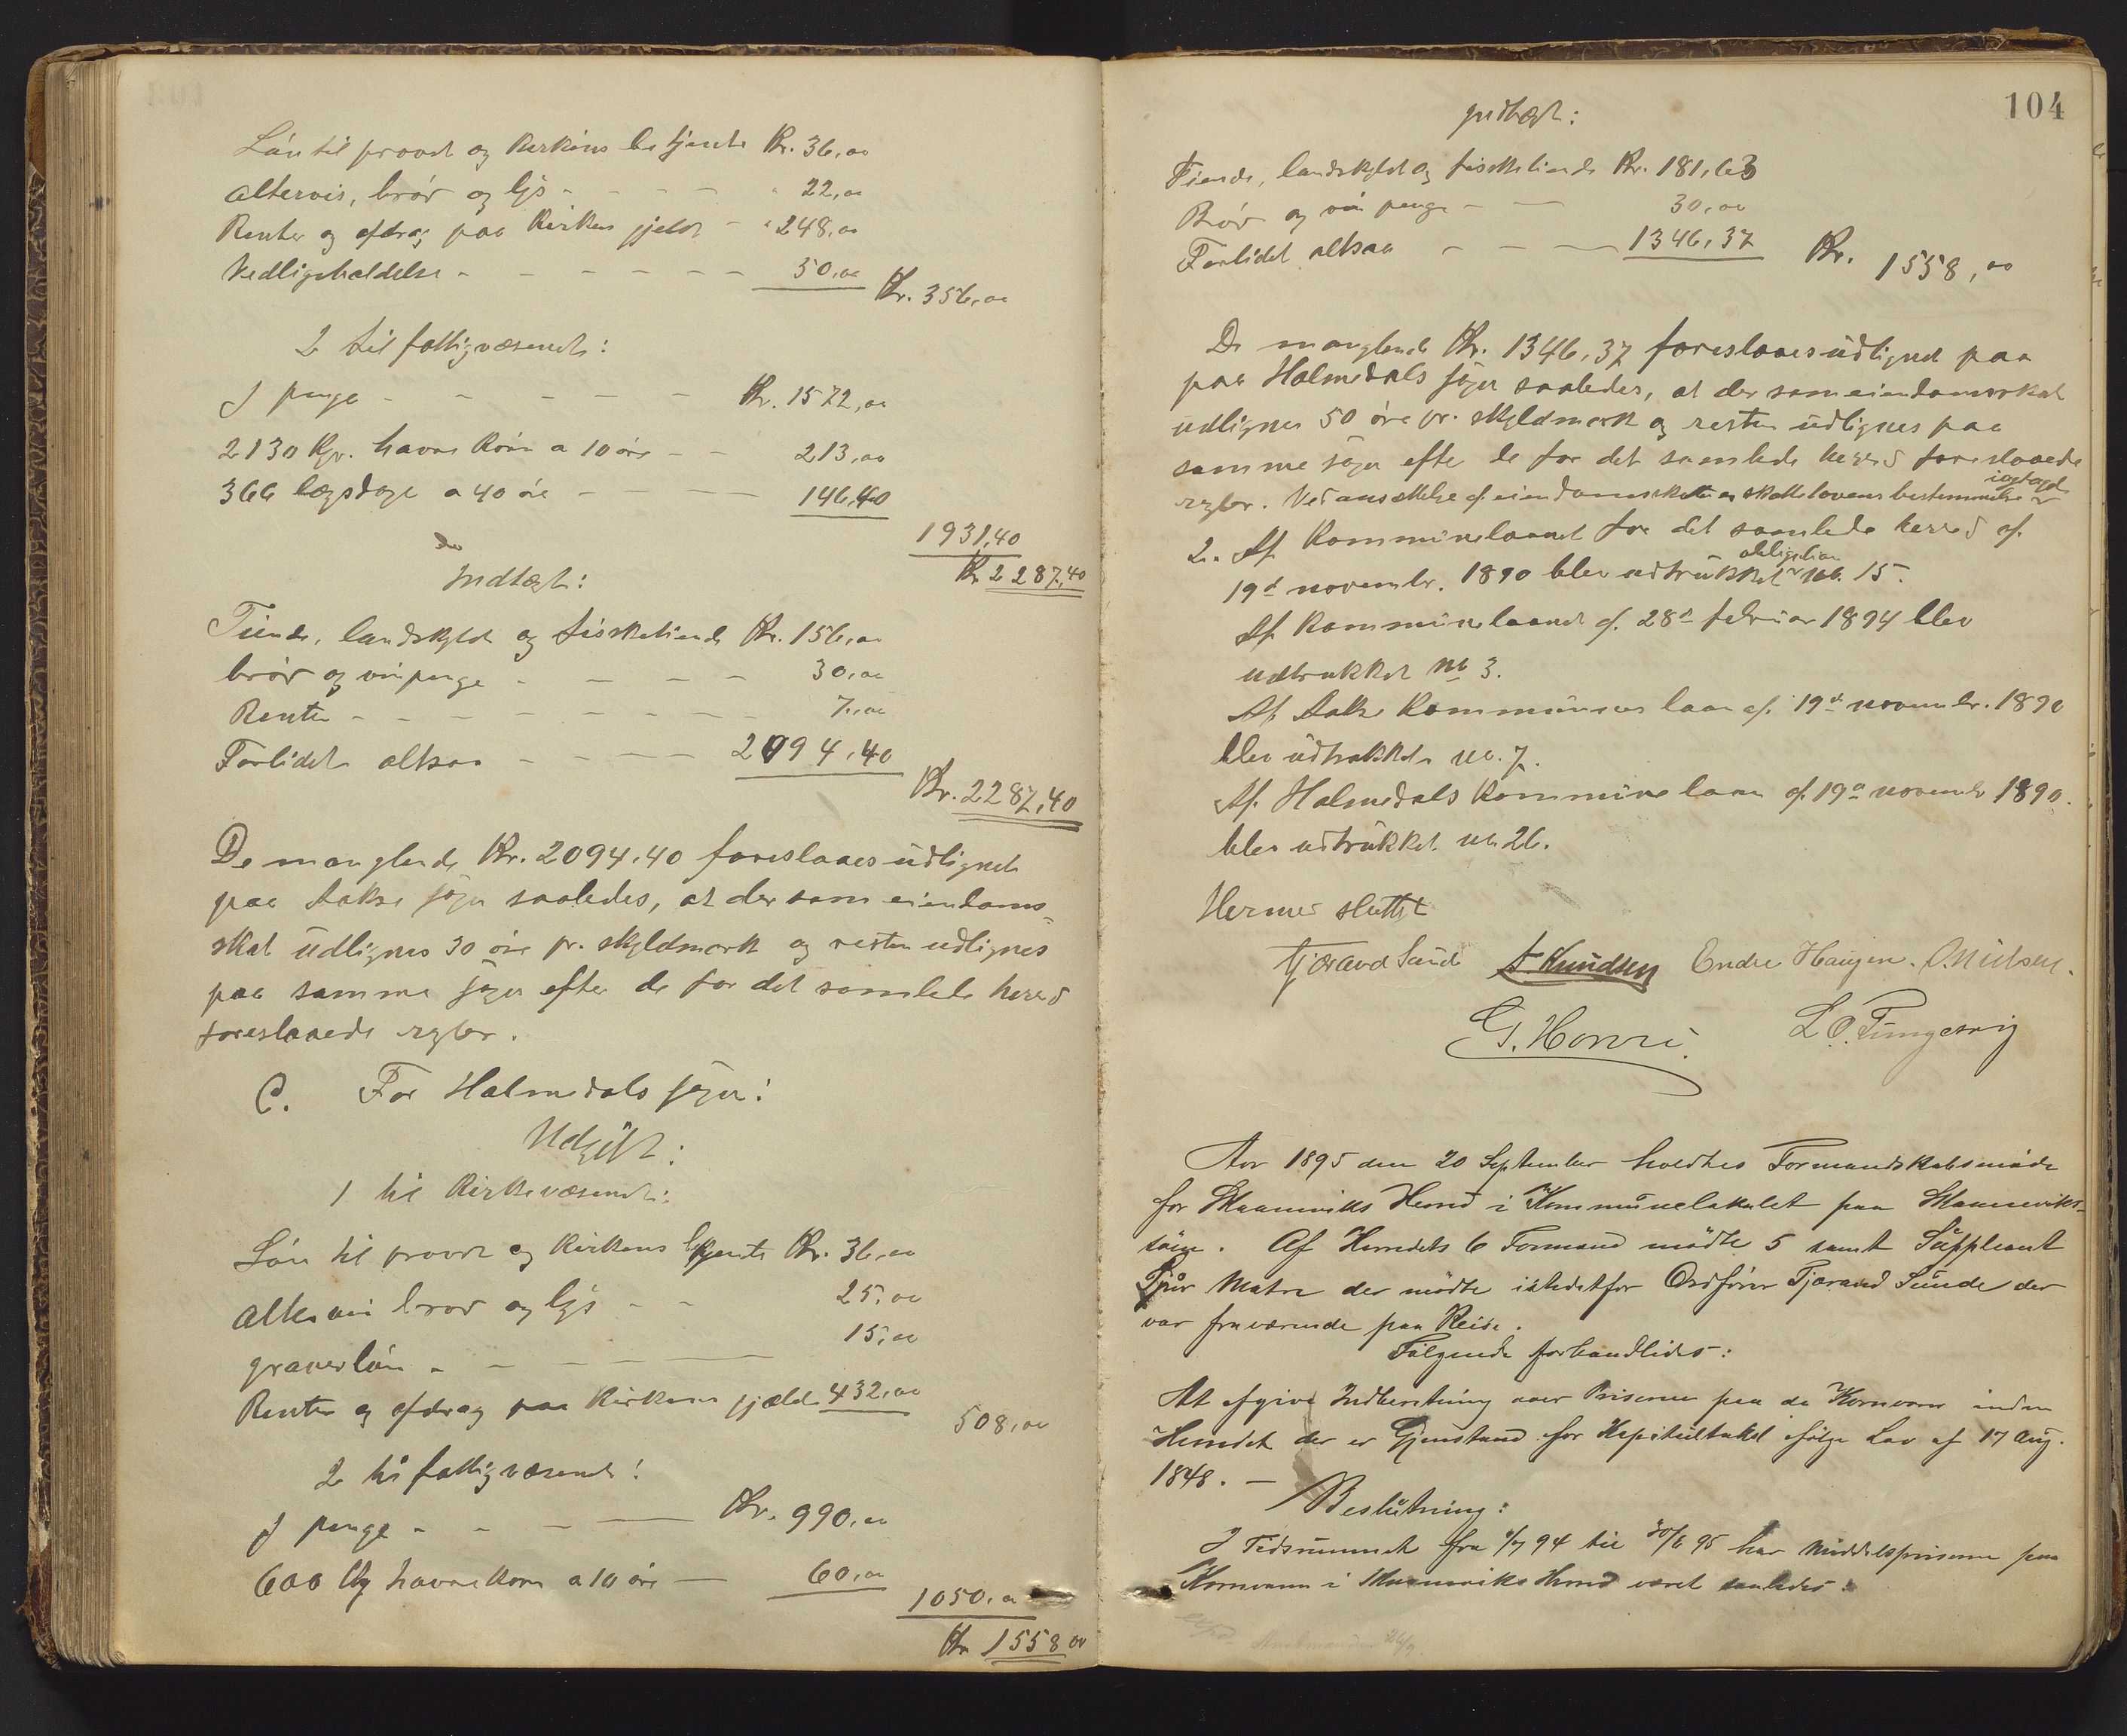 Løn til provst og Kirkens betjente Kr. 36,00
altervin, brød og lys - - - - " 22,00
Renter og afdrag paa Kirkens gjeld - " 248,00
Vedligeholdelse - - - - - - - 50,00
Kr. 356,00
2 til fattigvæsenet:
I penge - - - - - - Kr. 1572,00
2130 Kgr. havre Korn a 10 øre - - 213,00
366 lægsdage a 40 øre - - - - - 146,40
1931,40
Kr. 2287,40
Indtægt:
Tiende, landskyld og fisketiende Kr. 156,00
brød og vinpenge - - - - - 30,00
Renter - - - - - - - - 7,00
Forlidet altsaa - - - - - 2094,40
Kr. 2287,40
De manglende Kr. 2094,40 foreslaaes udlignet
paa Aakre sogn saaledes, at der som eiendoms-
skat udlignes 30 øre pr. skyldmark og resten udlignes
paa samme sogn efter de for det samlede herred
foreslaaede regler.
C. For Holmedals sogn:
Udgift:
1 til Kirkevæsenet:
Løn til provst og Kirkens betjente Kr. 36,00
altervin brød og lys - - 25,00
graverløn - - - - - - 15,00
Renter og afdrag paa Kirkens gjæld 432,00
508,00
2 til fattigvæsenet:
I penge - - - - Kr. 990,00
600 Kg havrekorn a 10 øre - 60,00
1050,00
Kr 1558 00
104
Indtægt:
Tiende, landskyld og fisketiende Kr. 181,63
Brød og vin penge - - 30,00
Forlidet altsaa - - - - 1346,37 Kr. 1558,00
De manglende Kr. 1346,37 foreslaaes udlignet paa
paa Holmedals sogn saaledes, at der som eiendomsskat
udlignes 50 øre pr. skyldmark og resten udlignes paa
samme sogn efter de for det samlede herred foreslaaede
regler. Ved ansættelse af eiendomsskatten er skattelovens bestemmelser iagtaget
2. Af Kommunelaanet for det samlede herred af
19de november. 1890 blev udtrukket obligation no. 15.
Af Kommunelaanet af 28de februar 1894 blev
udtrukket No 3.
Af Aakre Kommunes laan af 19de november. 1890
blev udtrukket no. 7.
Af Holmedals Kommune laan af 19de november 1890.
blev udtrukket no 26.
Hermed sluttet
Tjærand Sunde A Knudsen Endre Haugen. O. Nielsen.
G. Horvei. L O. Tungesvig
Aar 1895 den 20 September holdtes Formandskabsmøde
for Skaaneviks Herred i Kommunelokalet paa Skaaneviks-
søien. Af Herredets 6 Formænd mødte 5 samt Suppleant
Sjur Matre der mødte istedetfor Ordfører Tjærand Sunde der
var fraværende paa Reise.
Følgende forhandledes:
At afgive Indberetning over Priserne paa de Kornvarer inden
Herredet der er Gjenstand for Kapitelstakst ifølge Lov af 17 Aug.
1848. -
Beslutning:
I Tidsrummet fra 1/7 94 til 30/6 95 har Middelsprisene paa
Kornvarer i Skaaneviks Herred været saaledes:
exp. Amtmanden 26/9